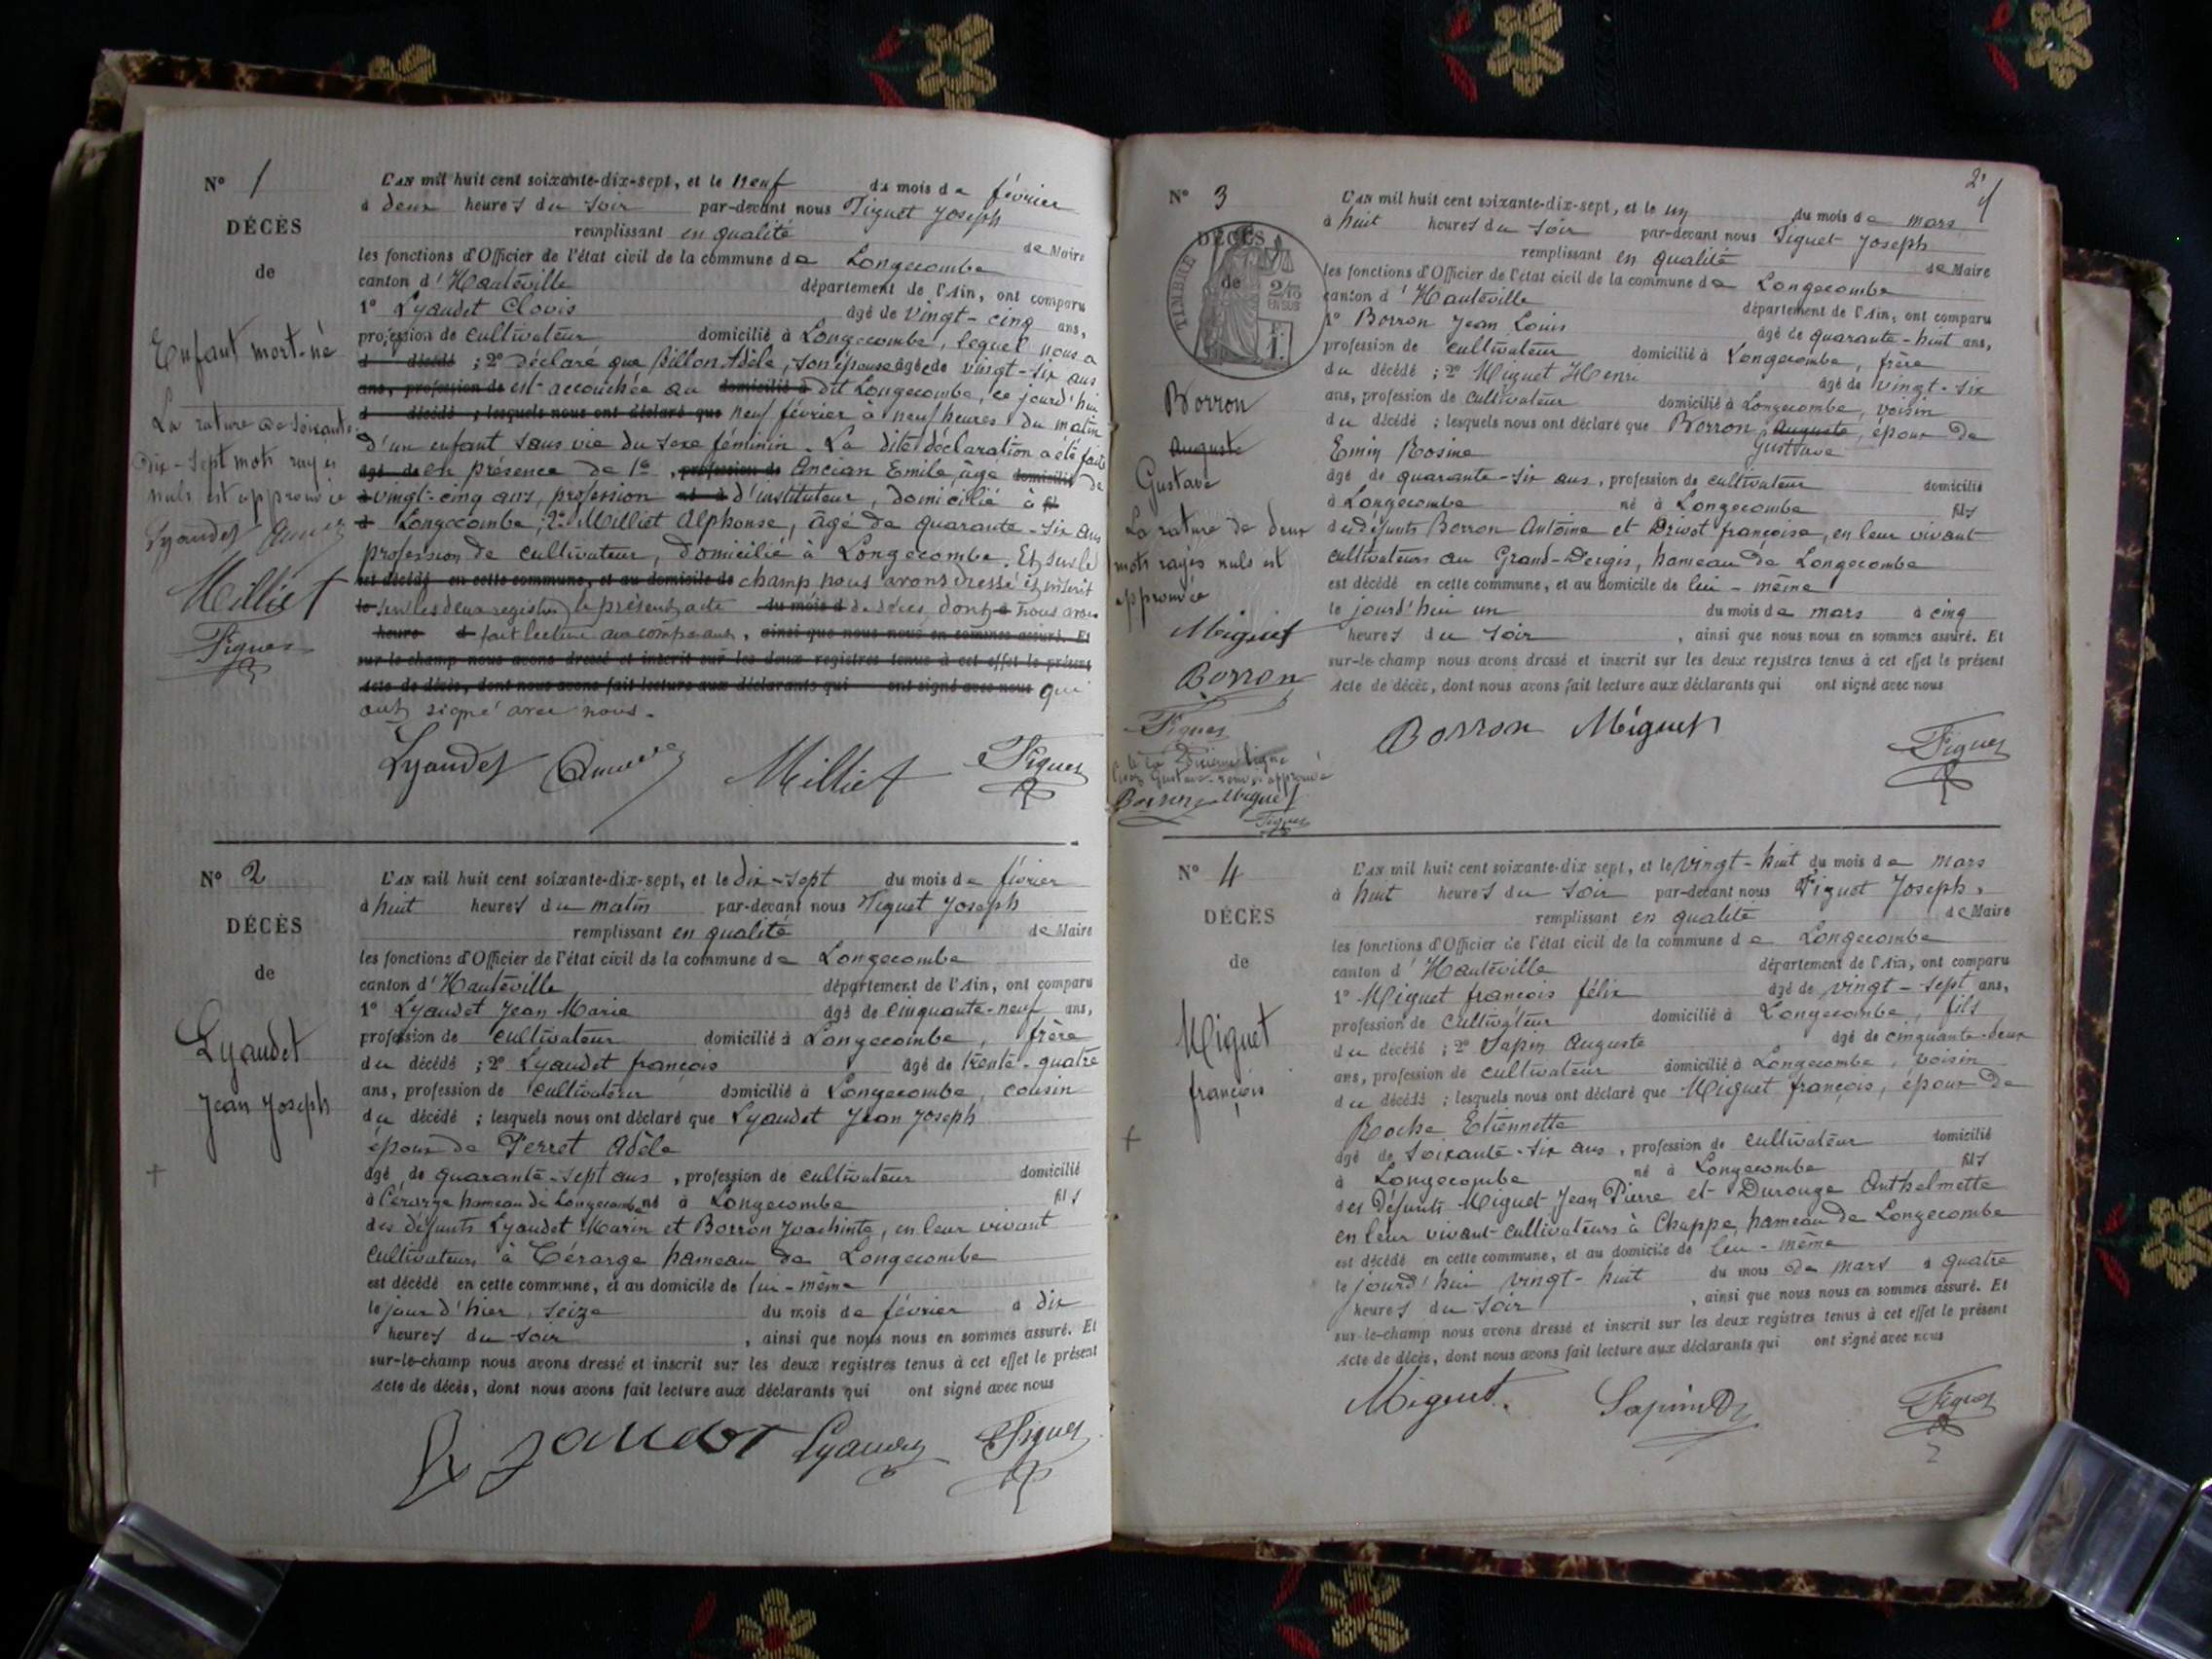 N° 1
DÉCÈS
de
Enfant mort-né
La rature de soixante-
dix-sept mots rayés
nuls est approuvée
Lyaudet
Milliet
Figuet
L'AN mil huit cent soixante-dix-sept, et le neuf du mois de février
à deux heures du soir par-devant nous Figuet Joseph
remplissant en qualité de Maire
les fonctions d'Officier de l'état civil de la commune de Longecombe
canton d'Hauteville département de l'Ain, ont comparu
1° Lyaudet Clovis âgé de vingt-cinq ans,
profession de cultivateur domicilié à Longecombe, lequel nous a
d décédé ; 2° déclaré que Billon Adèle, son épouse âgée de vingt-six ans
ans, profession de est accouchée au domicilié à dit Longecombe, ce jourd'hui
d décédé ; lesquels nous ont déclaré que neuf février à neuf heures du matin
d'un enfant sans vie du sexe féminin. La dite déclaration a été faite
âgé de en présence de 1° profession de Ancian Emile, âgé domicilié de
à vingt-cinq ans, profession né à d'instituteur, domicilié à fil
d Longecombe, 2° Milliet Alphonse, âgé de quarante-six ans
profession de cultivateur, domicilié à Longecombe. Et sur le
est décédé en cette commune, et au domicile de champ nous avons dressé et inscrit
le sur les deux registres le présent acte du mois d de décès, dont à nous avons
heure d fait lecture aux comparants, ainsi que nous nous en sommes assuré. Et
sur-le-champ nous avons dressé et inscrit sur les deux registres tenus à cet effet le présent
acte de décès, dont nous avons fait lecture aux déclarants qui ont signé avec nous qui
ont signé avec nous.
Lyaudet Milliet Figuet
N° 2
DÉCÈS
de
Lyaudet
Jean Joseph
L'AN mil huit cent soixante-dix-sept, et le dix-sept du mois de février
à huit heures du matin par-devant nous Figuet Joseph
remplissant en qualité de Maire
les fonctions d'Officier de l'état civil de la commune de Longecombe
canton d'Hauteville département de l'Ain, ont comparu
1° Lyaudet Jean Marie âgé de cinquante-neuf ans,
profession de cultivateur domicilié à Longecombe, frère
du décédé ; 2° Lyaudet françois âgé de trente-quatre
ans, profession de cultivateur domicilié à Longecombe, cousin
du décédé ; lesquels nous ont déclaré que Lyaudet Jean Joseph
époux de Perret Adèle
âgé de quarante-sept ans, profession de cultivateur domicilié
à Cérarge hameau de Longecombe né à Longecombe fils
des défunts Lyaudet Marin et Borron Joachinte, en leur vivant
cultivateurs à Cérarge hameau de Longecombe
est décédé en cette commune, et au domicile de lui-même
le jour d'hier, seize du mois de février à dix
heures du soir, ainsi que nous nous en sommes assuré. Et
sur-le-champ nous avons dressé et inscrit sur les deux registres tenus à cet effet le présent
acte de décès, dont nous avons fait lecture aux déclarants qui ont signé avec nous
Lyaudet Lyaudet Figuet
2
N° 3
DÉCÈS
de
TIMBRE
2/10
EN SUS
Borron
Auguste
Gustave
La rature de deux
mots rayés nuls est
approuvée
Miguet
Borron
Figuet
Gustave renvoi approuvé
Borron Miguet
Figuet
L'AN mil huit cent soixante-dix-sept, et le un du mois de mars
à huit heures du soir par-devant nous Figuet Joseph
remplissant en qualité de Maire
les fonctions d'Officier de l'état civil de la commune de Longecombe
canton d'Hauteville département de l'Ain, ont comparu
1° Borron Jean Louis âgé de quarante-huit ans,
profession de cultivateur domicilié à Longecombe, frère
du décédé ; 2° Miguet Henri âgé de vingt-six
ans, profession de cultivateur domicilié à Longecombe, voisin
du décédé ; lesquels nous ont déclaré que Borron, Auguste, époux de
Emin Rosine Gustave
âgé de quarante-six ans, profession de cultivateur domicilié
à Longecombe né à Longecombe fils
des défunts Borron Antoine et Drivot françoise, en leur vivant
cultivateurs au Grand-Dergis, hameau de Longecombe
est décédé en cette commune, et au domicile de lui-même
le jourd'hui un du mois de mars à cinq
heures du soir, ainsi que nous nous en sommes assuré. Et
sur-le-champ nous avons dressé et inscrit sur les deux registres tenus à cet effet le présent
acte de décès, dont nous avons fait lecture aux déclarants qui ont signé avec nous
Borron Miguet Figuet
N° 4
DÉCÈS
de
Miguet
françois
L'AN mil huit cent soixante-dix sept, et le vingt-huit du mois de mars
à huit heures du soir par-devant nous Figuet Joseph,
remplissant en qualité de Maire
les fonctions d'Officier de l'état civil de la commune de Longecombe
canton d'Hauteville département de l'Ain, ont comparu
1° Miguet françois félix âgé de vingt-sept ans,
profession de cultivateur domicilié à Longecombe, fils
du décédé ; 2° Sapin Auguste âgé de cinquante-deux
ans, profession de cultivateur domicilié à Longecombe, voisin
du décédé ; lesquels nous ont déclaré que Miguet françois, époux de
Roche Etiennette
âgé de soixante-six ans, profession de cultivateur domicilié
à Longecombe né à Longecombe fils
des défunts Miguet Jean Pierre et Durouge Anthelmette
en leur vivant cultivateurs à Chappe, hameau de Longecombe
est décédé en cette commune, et au domicile de lui-même
le jourd'hui vingt-huit du mois de mars à quatre
heures du soir, ainsi que nous nous en sommes assuré. Et
sur-le-champ nous avons dressé et inscrit sur les deux registres tenus à cet effet le présent
acte de décès, dont nous avons fait lecture aux déclarants qui ont signé avec nous
Miguet. Sapin Figuet